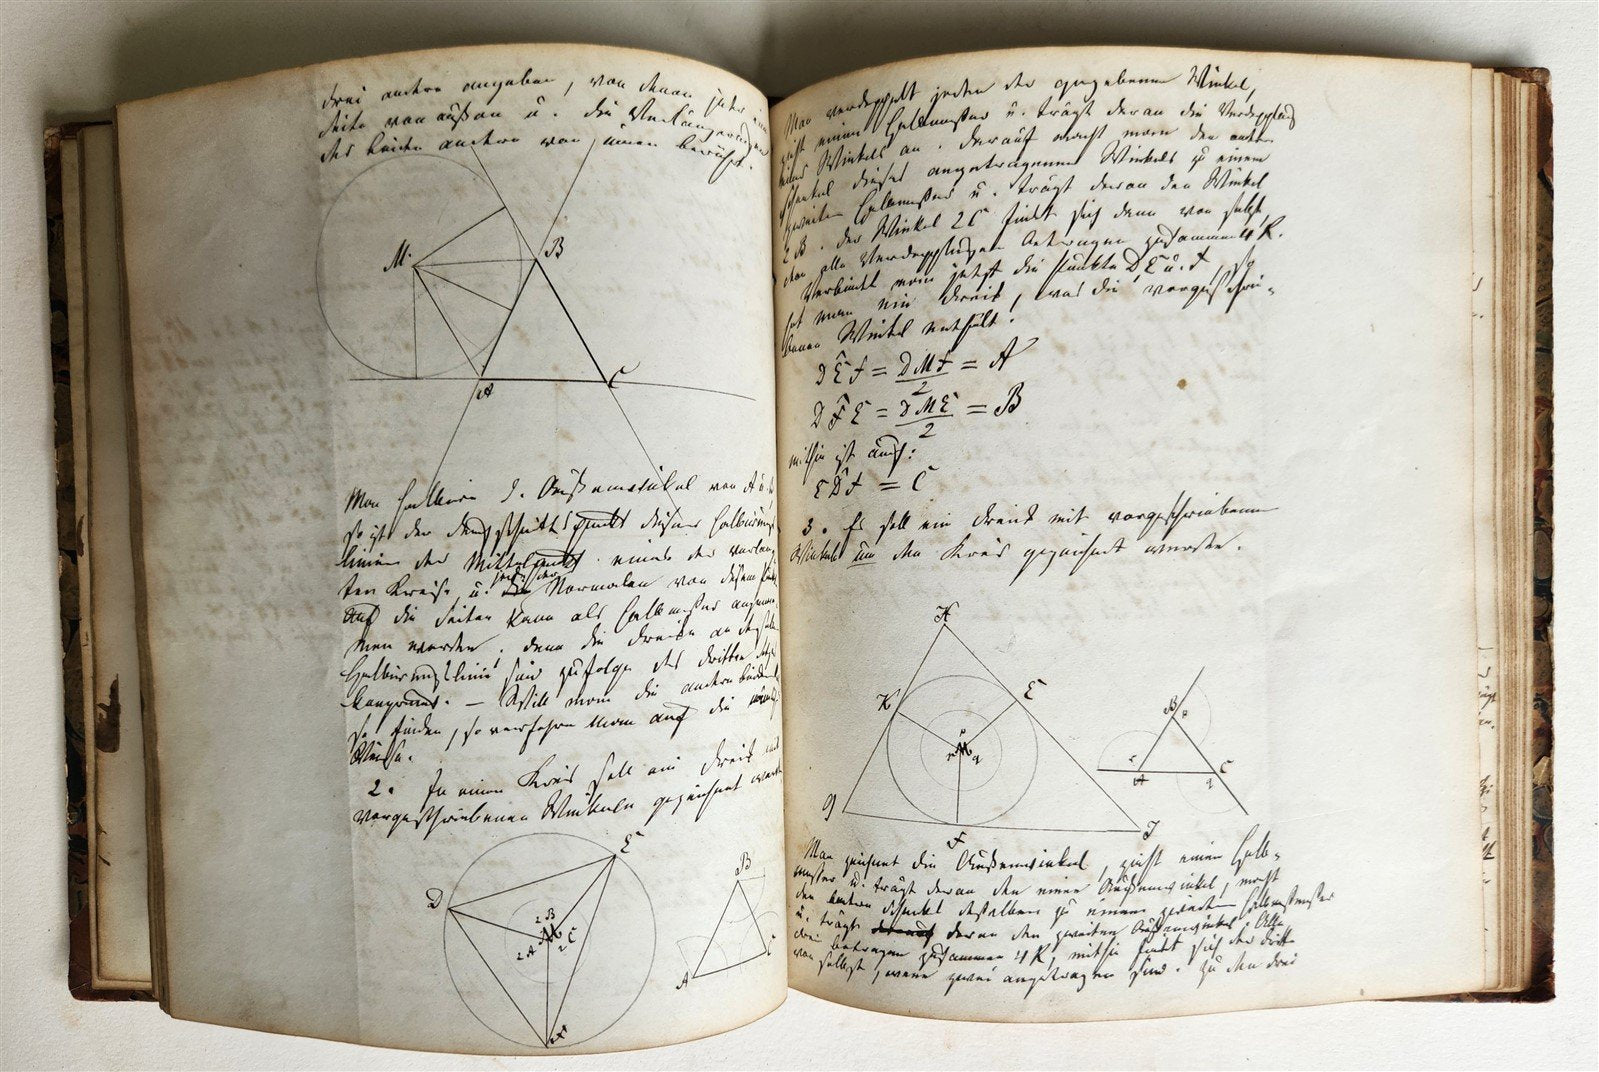 drei andere angeben, von denen jeder eine
Seite von außen u. die Verlängerungen
der beiden andern von innen berührt.
M.
B
A
C
Man halbiere 2. Außenwinkel von A u.
so ist der Durchschnittspunkt dieser Halbirungs
linien der Mittelpunkt eines der verlang
ten Kreise, u. jede der Normalen von diesem Punkt
auf die Seiten kann als Halbmesser angenom
men werden. denn die Dreiecke an
Halbirungslinie sind zufolge des dritten
kongruent. – Will man die andern beiden
so finden, so verfahre man auf die
Weise.
2. In einen Kreis soll ein Dreieck mit
vorgeschriebenen Winkeln gezeichnet werden
E
D
2B
M
2A
2C
F
B
A
C
Man verdoppelt jeden der gegebenen Winkel,
zieht einen Halbmesser u. trägt daran die Verdopplung
eines Winkels an. Darauf macht man den andern
Schenkel dieses angetragenen Winkels zu einem
zweiten Halbmesser u. trägt daran den Winkel
2B. der Winkel 2C findet sich dann von selbst,
den alle Verdopplungen betragen zusammen 4R.
Verbindet man jetzt die Punkte D, E u. F, so
hat man ein Dreieck, was die vorgeschrie-
benen Winkel enthält.
DÊF = DMF/2 = A
DF̂E = DME/2 = B
mithin ist auch:
ED̂F = C
3. Es soll ein Dreieck mit vorgeschriebenen
Winkeln um den Kreis gezeichnet werden.
H
K
E
M
G
F
J
B
A
C
Man zeichnet die Außenwinkel, zieht einen Halb-
messer u. trägt daran den einen Außenwinkel, macht
den andern Schenkel desselben zu einem zweiten Halbmesser
u. trägt daran den zweiten Außenwinkel. Alle
drei betragen zusammen 4R, mithin findet sich der dritte
von selbst, wenn zwei angetragen sind. Zu den drei